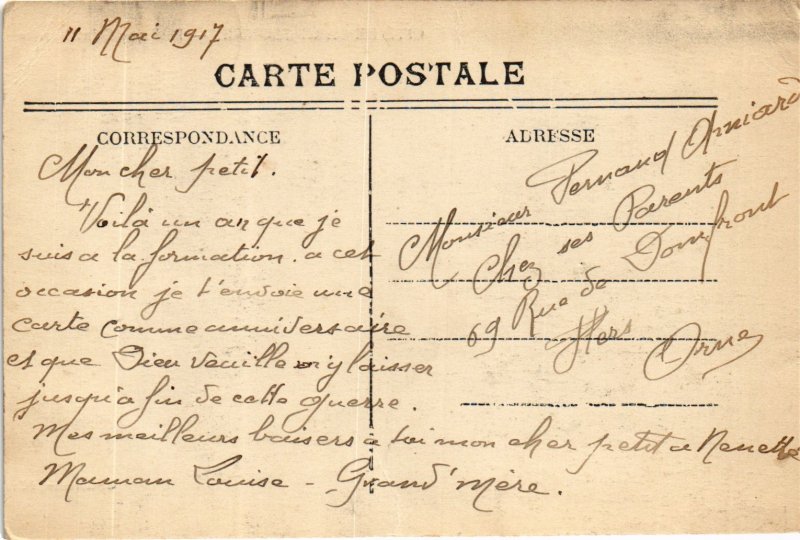 11 Mai 1917
CARTE POSTALE
CORRESPONDANCE
Mon cher petit.
Voilà un an que je
suis a la formation. a cet
occasion je t'envoie une
carte comme anniversaire
et que Dieu veuille m'y laisser
jusqu'a fin de cette guerre.
Mes meilleurs baisers à toi mon cher petit a Nenette
Maman Louise - Grand'mère.
ADRESSE
Monsieur Fernand
Chez ses Parents
69 Rue de Domfront
Flers
Orne